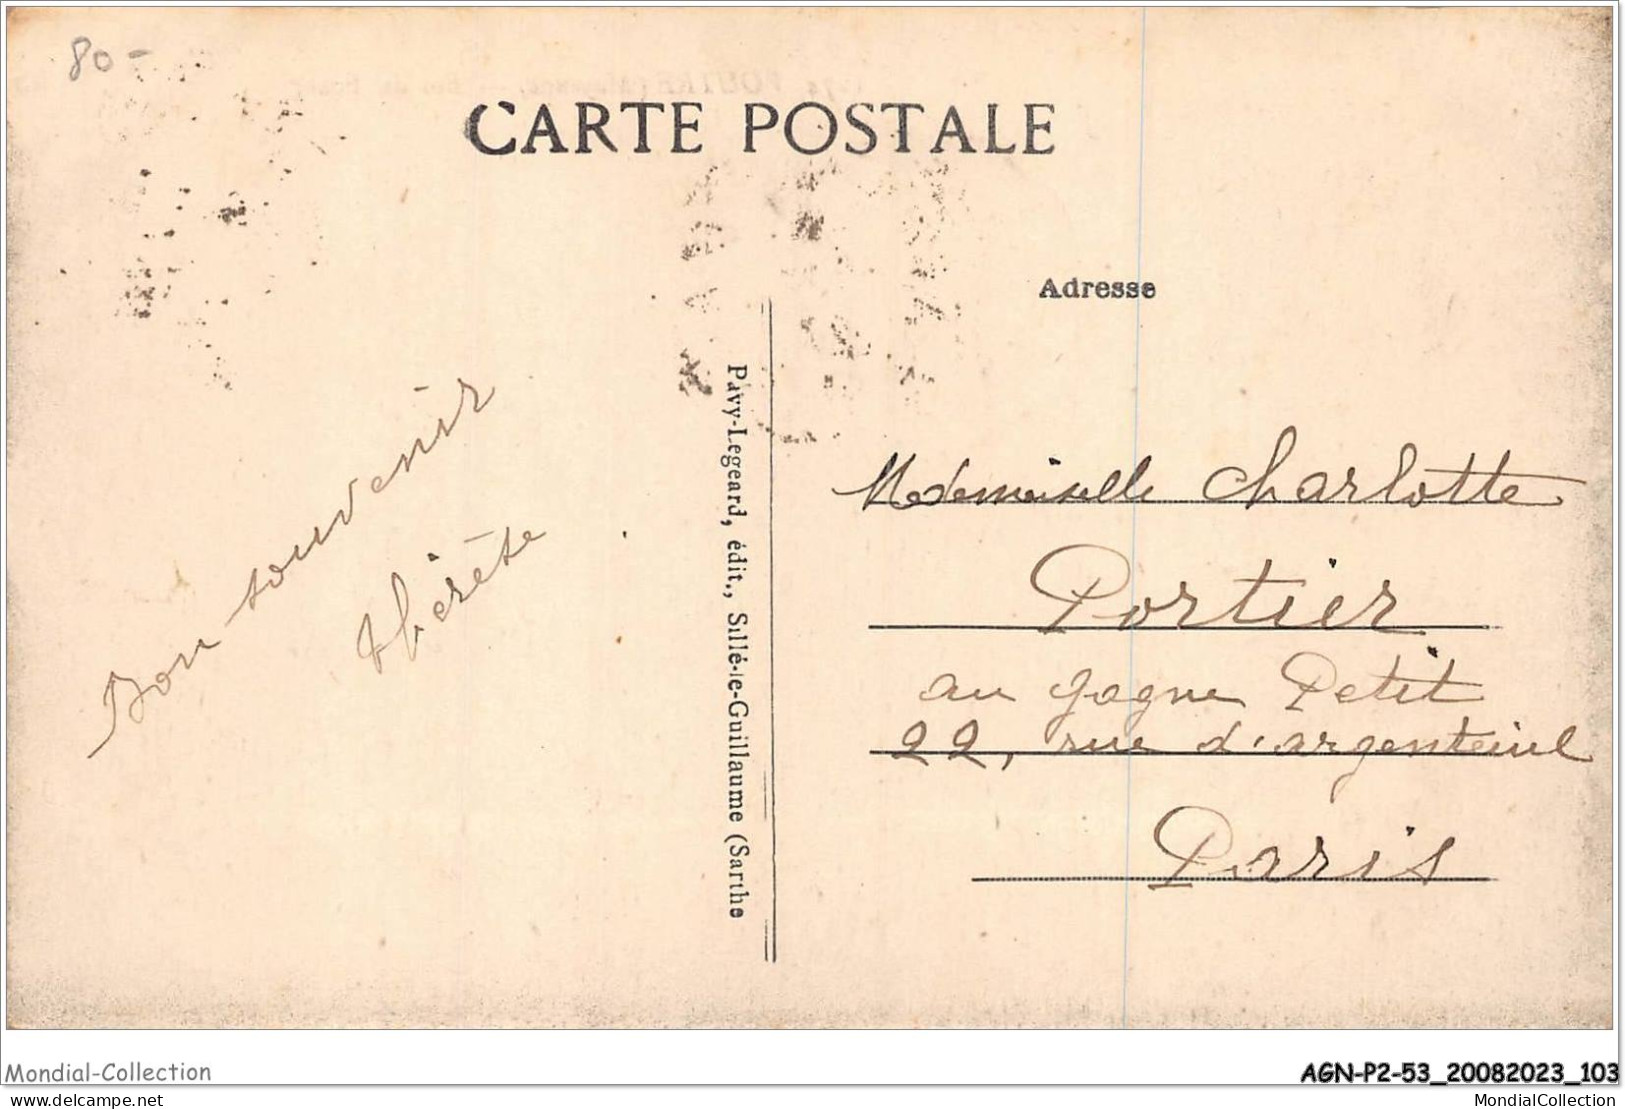 80-
CARTE POSTALE
Adresse
Bon souvenir
thérèse
Pavy-Legeard, édit., Sillé-le-Guillaume (Sarthe
Mademoiselle Charlotte
Portier
au gagne Petit
22, rue d'argenteuil
Paris
Mondial-Collection
AGN-P2-53_20082023_103
delcampe.net
MondialCollection